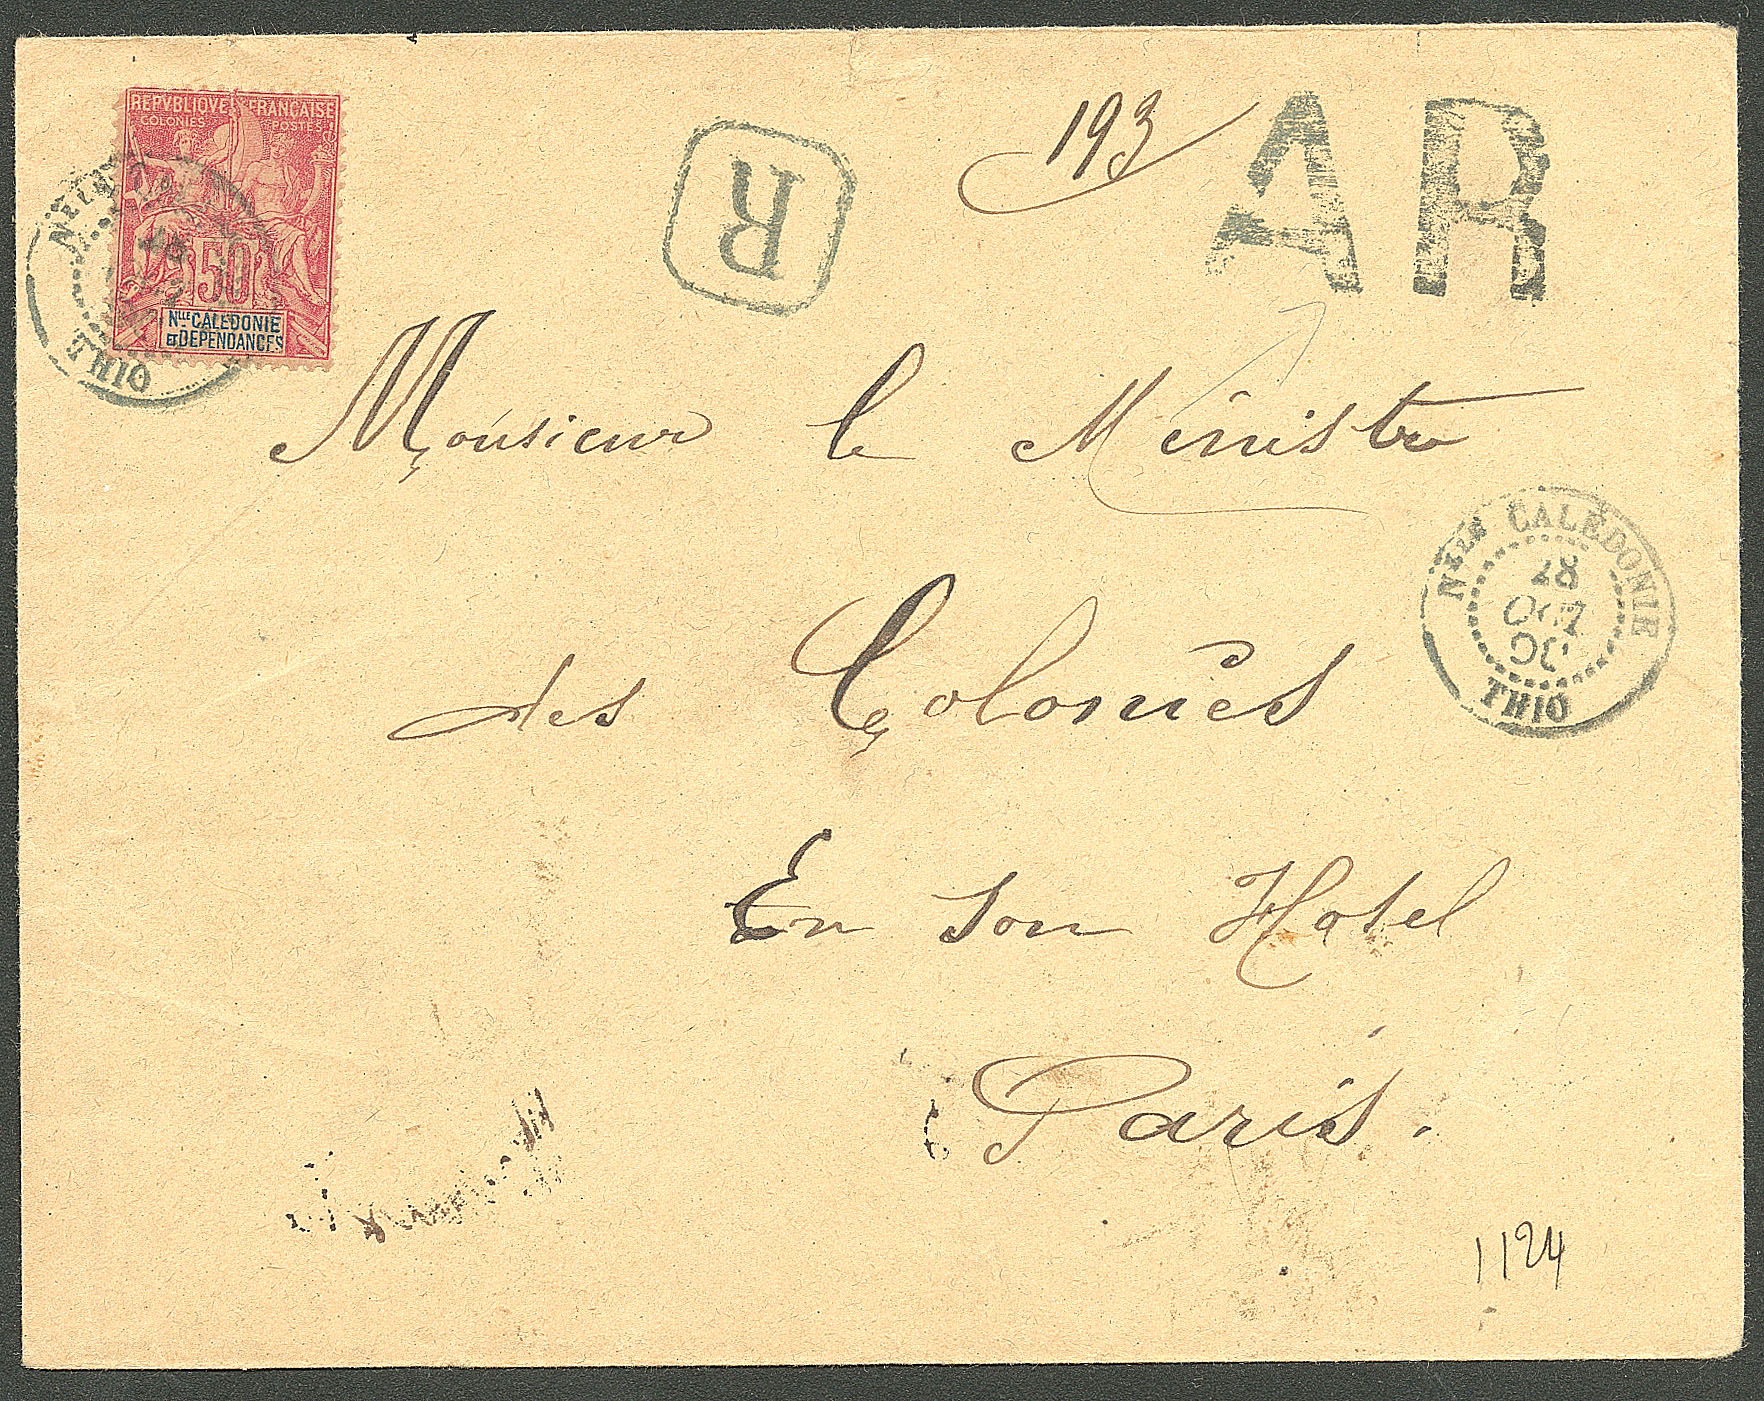 REPVBLIQVE FRANÇAISE
COLONIES POSTES
50
Nlle CALEDONIE
ET DEPENDANCES
THIO
R
193
AR
Monsieur le Ministre
des Colonies
En son Hotel
Paris.
NELLE CALÉDONIE
28
OCT
THIO
1124